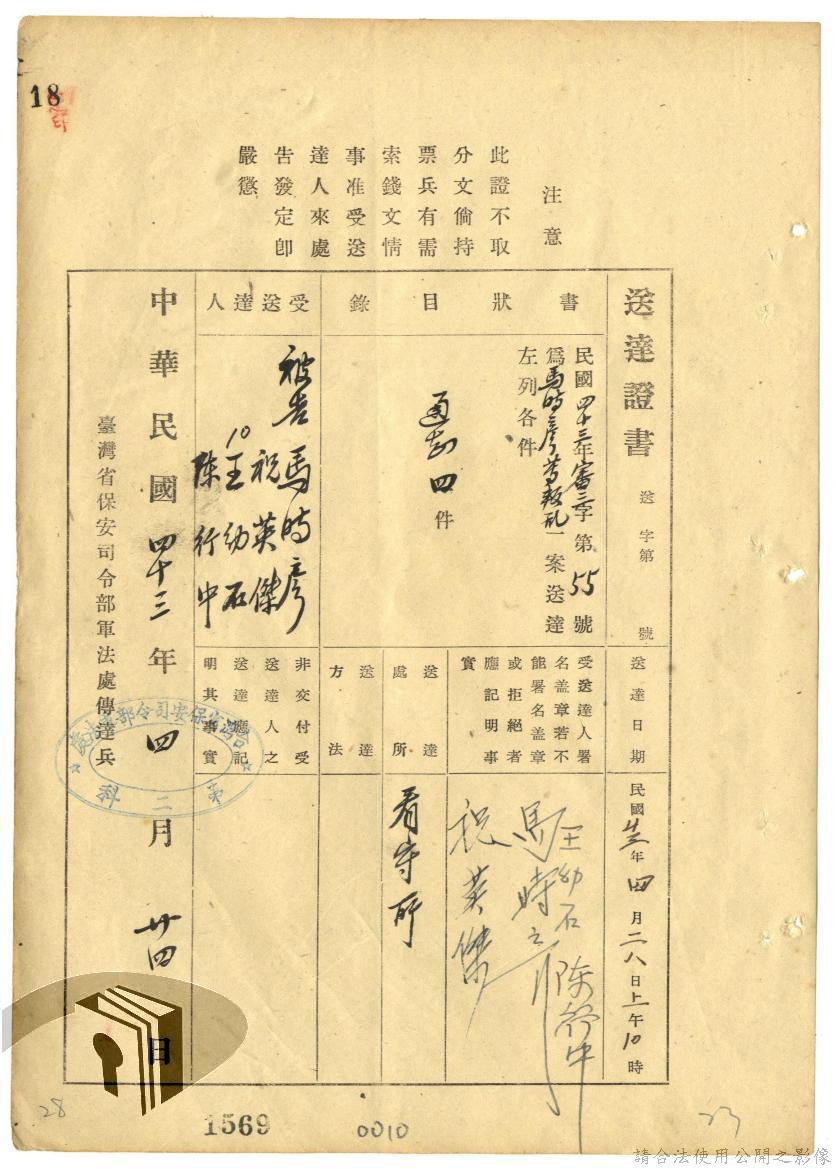 18
注意
此證不取
分文倘持
票兵有需
索錢文情
事准受送
達人來處
告發定卽
嚴懲
送達證書 送字第 號
書狀目錄
民國四十三年審三字第55號
為馬時彥等叛乱一案送達
左列各件
通知四件
受送達人
被告馬時彥
祝英傑
10王幼石
陳行中
送達日期
民國卌三年四月二八日上午10時
受送達人署
名盖章若不
能署名盖章
或拒絕者
應記明事
實
王幼石 陈行中
馬時彥
祝英傑
送達處所
看守所
送達方法
非交付受
送達人之
送達應記
明其事實
中華民國四十三年四月廿四日
臺灣省保安司令部軍法處傳達兵
台灣省保安司令部軍法處
第二科
28
1569
0010
23
請合法使用公開之影像